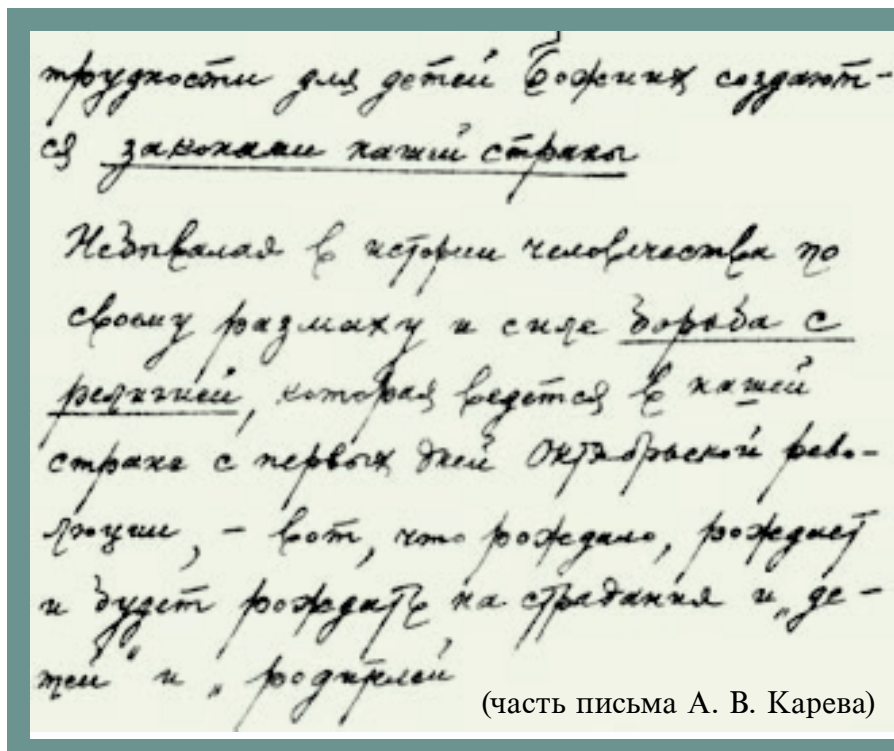 трудности для детей Божиих создают-
ся законами нашей страны
Небывалая в истории человечества по
своему размаху и силе борьба с
религией, которая ведётся в нашей
стране с первых дней Октябрьской рево-
люции, – вот, что рождало, рождает
и будет рождать на страдания и „де-
тей“ и „родителей
(часть письма А. В. Карева)